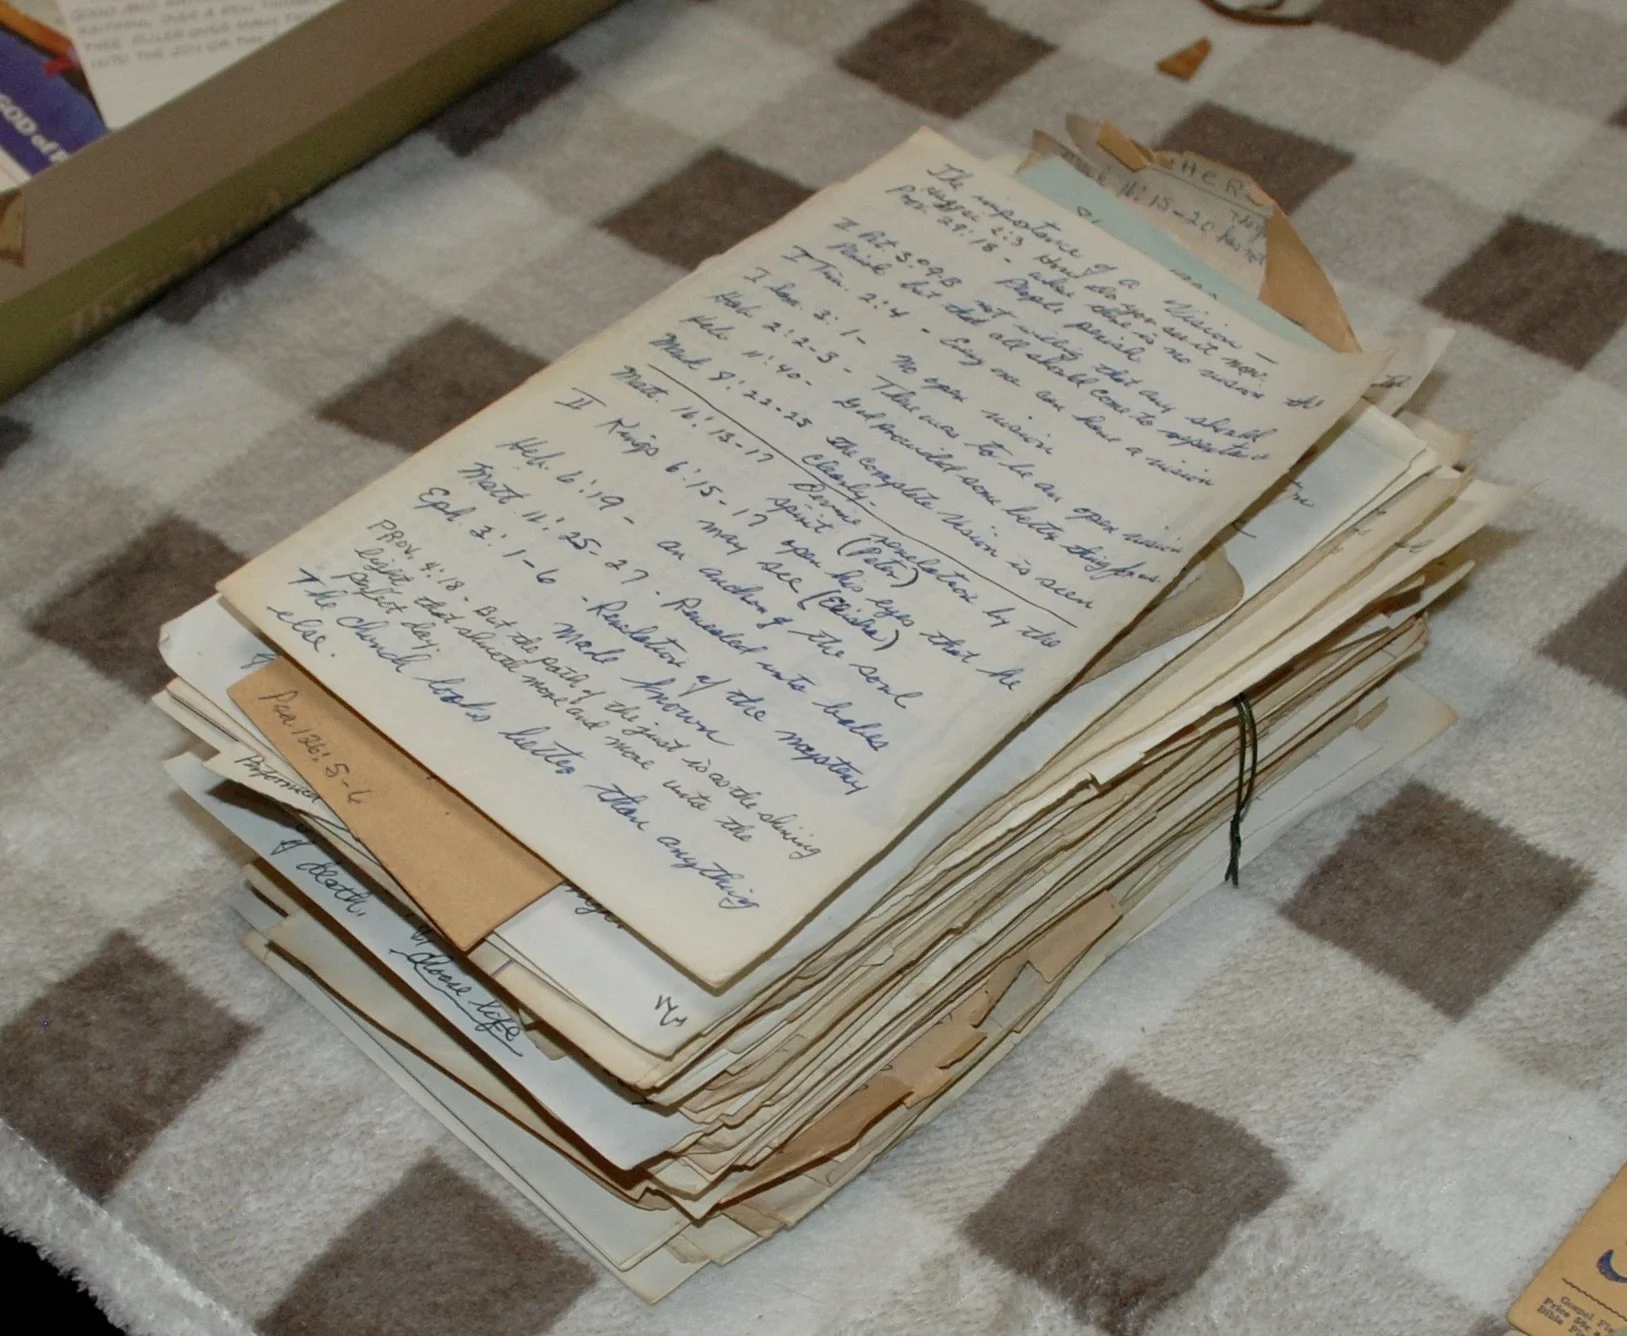 The importance of a Vision -
Haggai 2:3 How do you see it now.
Prov. 29:18 - where there is no vision the
People perish
II Pet 3:9B not willing that any should
Perish but that all should come to repentance
I Tim. 2:4 - Every one can have a vision
I Sam. 3:1 - No open vision
Hab. 2:2-3 - There was to be an open vision
Heb. 11:40 - God provided some better thing for us.
Mark 8:22-25 The complete vision is seen
clearly.
Matt. 16:15-17 Devine revelation by the
spirit (Peter)
II Kings 6:15-17 open his eyes that he
may see (Elisha)
Heb. 6:19 - an anchor of the soul
Matt 11:25-27 - Revealed unto babes
Eph. 3:1-6 - Revelation of the mystery
made known
PROV. 4:18 - But the path of the just is as the shining
light that shineth more and more unto the
perfect day.
The Church looks better than anything
else.
HER
16:15-20
Psa 126:5-6
Performed
of death,
choose life
GOD of
INTO THE JOY OF
Gospel
Price
Bible